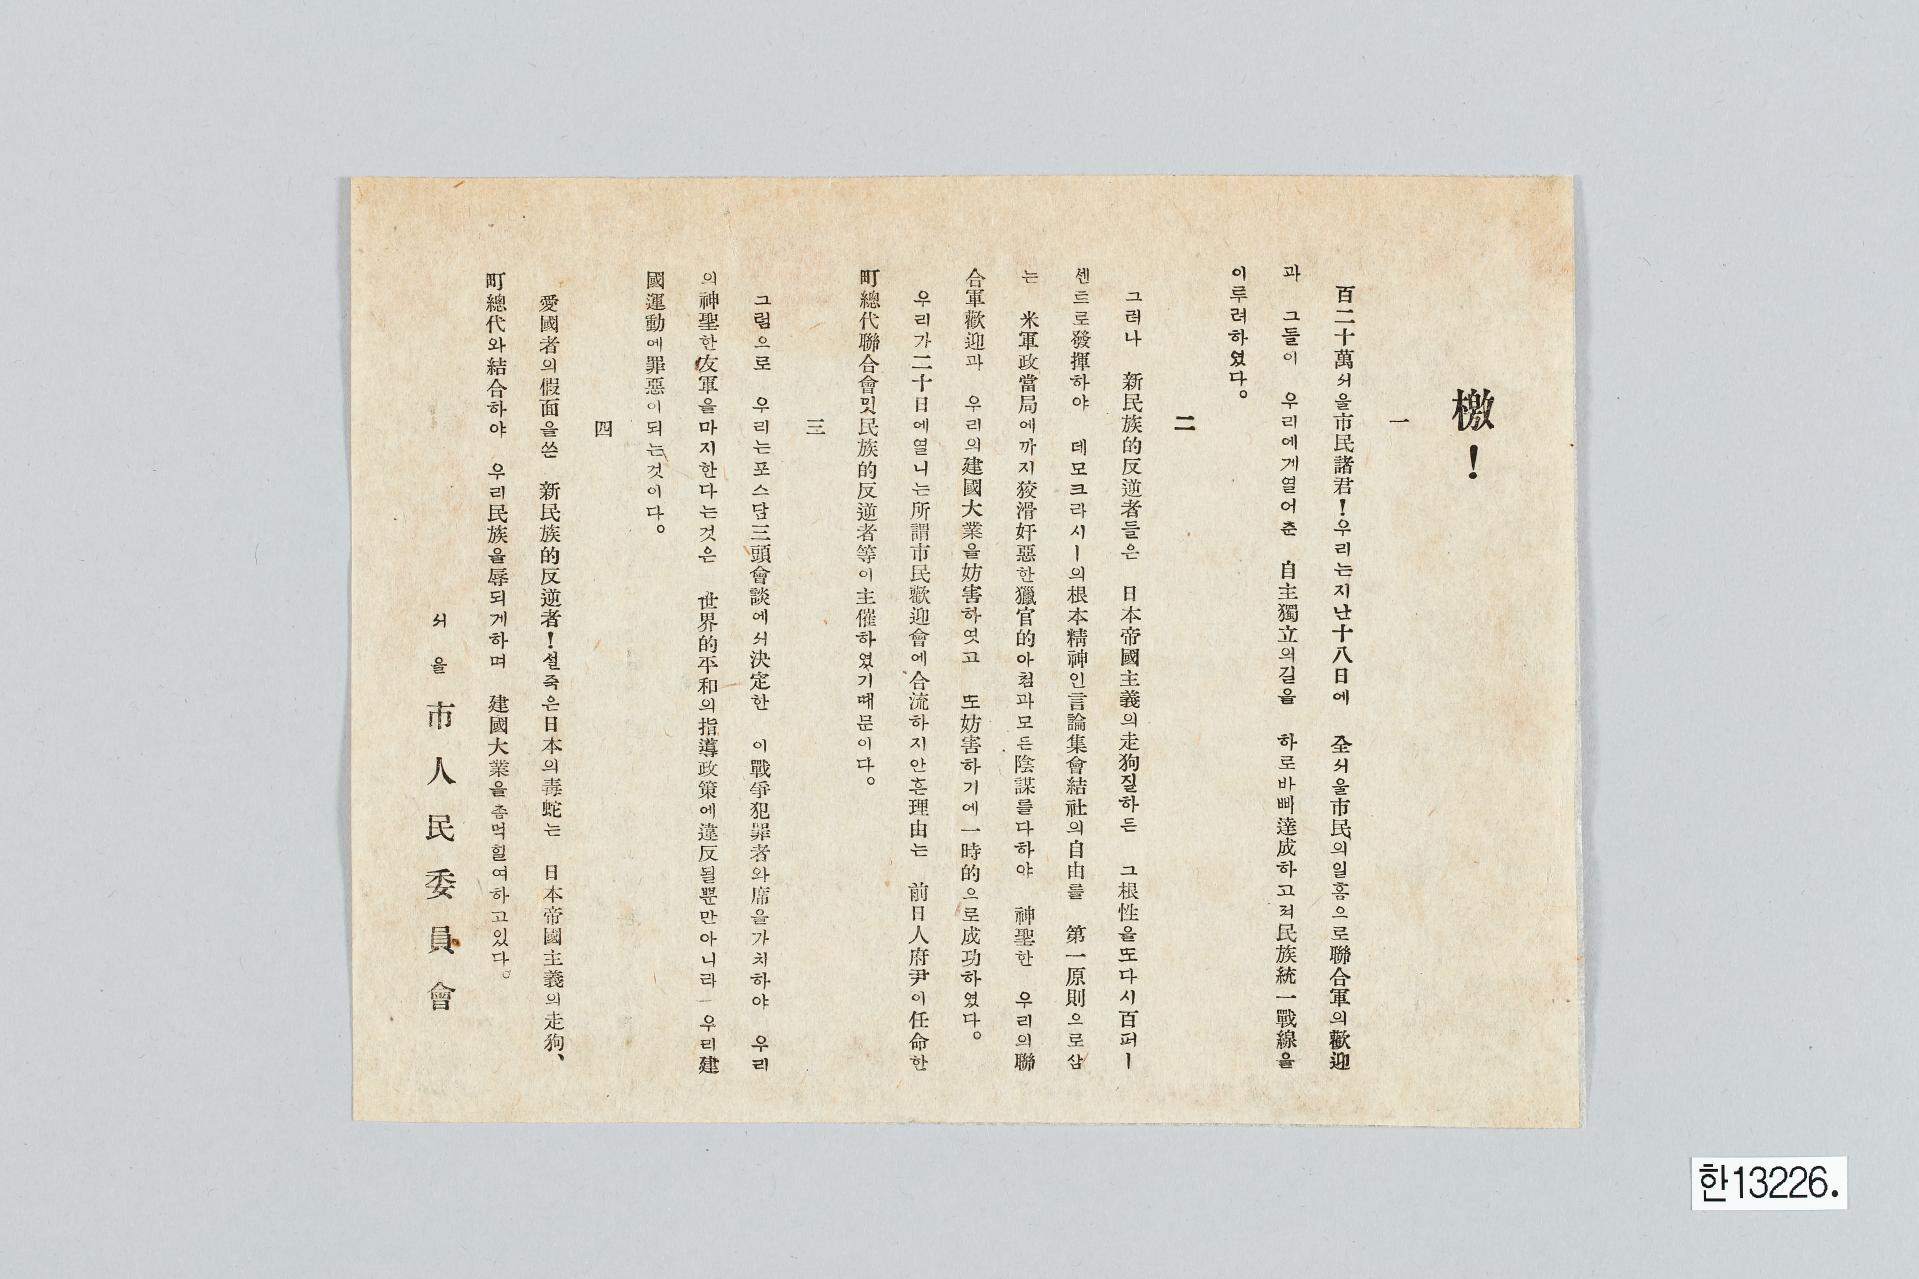 檄!
一
百二十萬서울市民諸君!우리는지난十八日에 全서울市民의일홈으로聯合軍의歡迎
과 그들이 우리에게열어준 自主獨立의길을 하로바삐達成하고저民族統一戰線을
이루려하였다。
二
그러나 新民族的反逆者들은 日本帝國主義의走狗질하든 그根性을또다시百퍼ー
센트로發揮하야 데모크라시ー의根本精神인言論集會結社의自由를 第一原則으로삼
는 米軍政當局에까지狡滑奸惡한獵官的아첨과모든陰謀를다하야 神聖한 우리의聯
合軍歡迎과 우리의建國大業을妨害하엿고 또妨害하기에一時的으로成功하였다。
우리가二十日에열니는所謂市民歡迎會에合流하지안흔理由는 前日人府尹이任命한
町總代聯合會및民族的反逆者等이主催하였기때문이다。
三
그럼으로 우리는포스담三頭會談에서決定한 이戰爭犯罪者와席을가치하야 우리
의神聖한友軍을마지한다는것은 世界的平和의指導政策에違反될뿐만아니라 우리建
國運動에罪惡이되는것이다。
四
愛國者의假面을쓴 新民族的反逆者!설죽은日本의毒蛇는 日本帝國主義의走狗、
町總代와結合하야 우리民族을辱되게하며 建國大業을좀먹힐여하고있다。
서울市人民委員會
한13226.